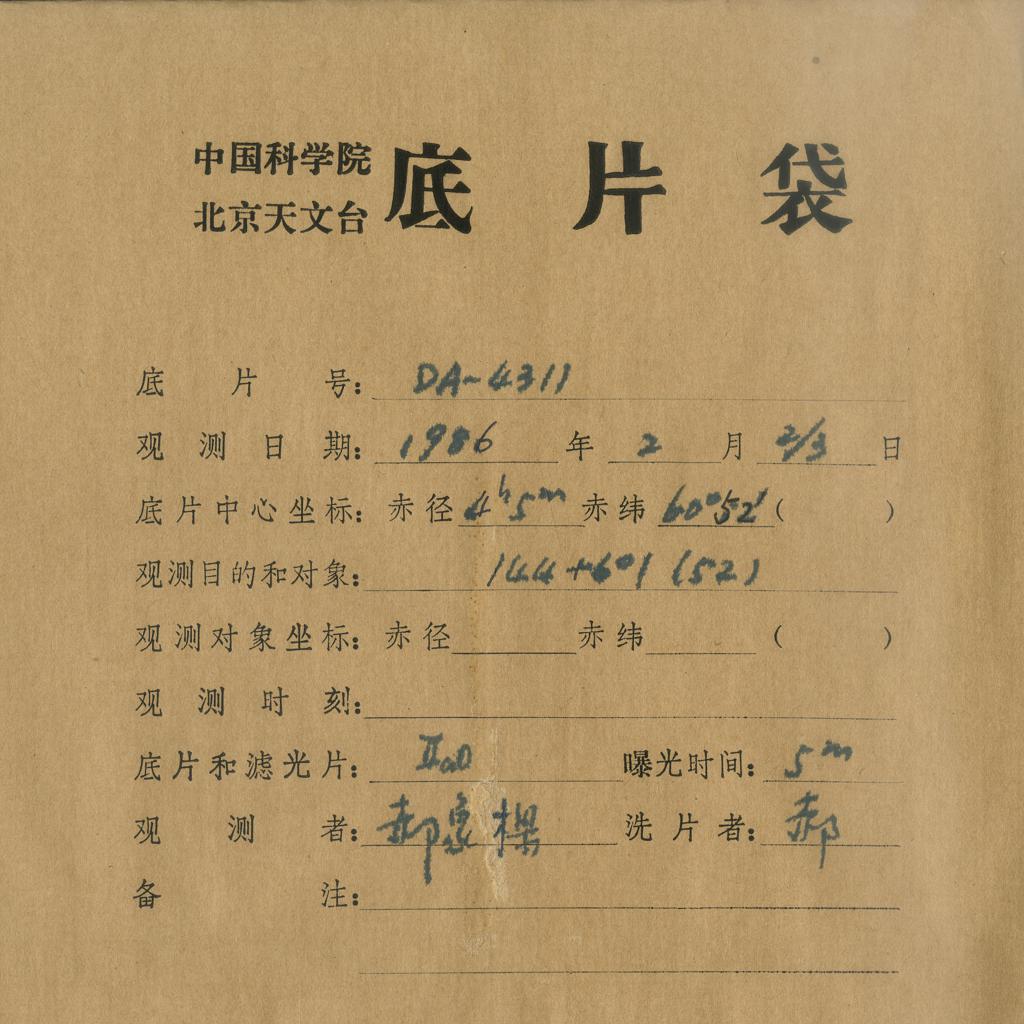 中国科学院
北京天文台
底片袋
底片号：DA-4311
观测日期：1986年2月2/3日
底片中心坐标：赤径4h5m赤纬60°52′(　)
观测目的和对象：144+601 (52)
观测对象坐标：赤径　赤纬　(　)
观测时刻：
底片和滤光片：IIaO　曝光时间：5m
观测者：郝象樑　洗片者：郝
备注：